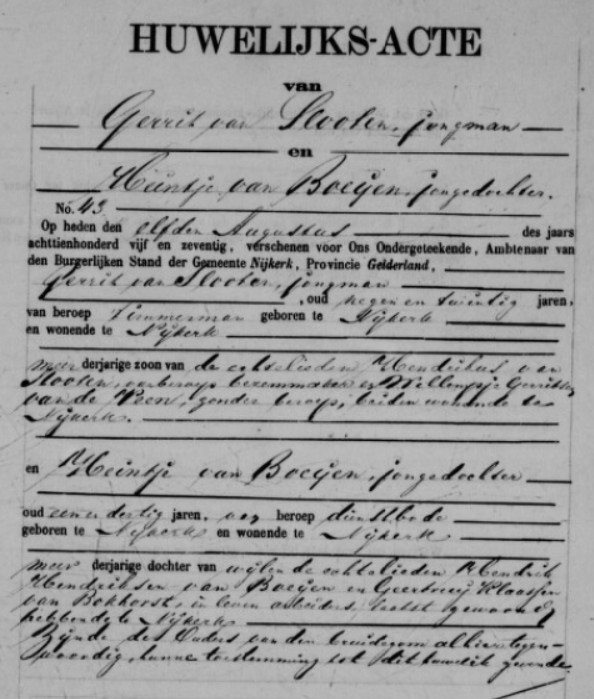 HUWELIJKS-ACTE
van
Gerrit van Slooten, jongman
en
Heintje van Boeijen, jongedochter.
No. 43
Op heden den elfden Augustus des jaars
achttienhonderd vijf en zeventig, verschenen voor Ons Ondergeteekende, Ambtenaar van
den Burgerlijken Stand der Gemeente Nijkerk, Provincie Gelderland,
Gerrit van Slooten, jongman
, oud negen en twintig jaren,
van beroep Timmerman geboren te Nijkerk
en wonende te Nijkerk
meer derjarige zoon van de echtelieden Hendrikus van
Slooten, van beroep bezemmaker en Willempje Gerritsen
van de Veen, zonder beroep, beiden wonende te
Nijkerk.
en Heintje van Boeijen, jongedochter
oud een en dertig jaren, van beroep dienstbode
geboren te Nijkerk en wonende te Nijkerk
meer derjarige dochter van wijlen de echtelieden Hendrik
Hendriksen van Boeijen en Geertruij Klaassen
van Bokhorst, in leven arbeiders, laatst gewoond
hebbende te Nijkerk
Zijnde de Ouders van den bruidegom alhier tegen-
woordig, hunne toestemming tot dit huwelijk gevende